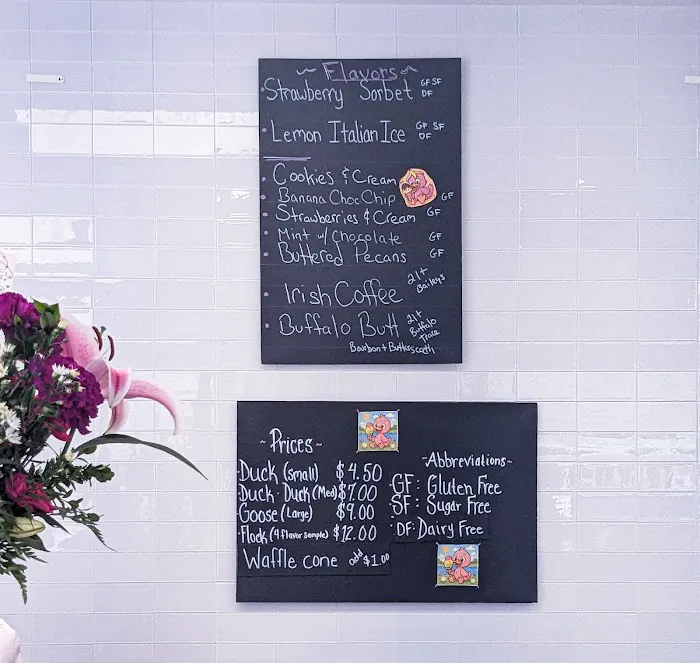 ~ Flavors ~
Strawberry Sorbet GF SF DF
Lemon Italian Ice GF SF DF
Cookies & Cream
Banana Choc Chip GF
Strawberries & Cream GF
Mint w/ Chocolate GF
Buttered Pecans GF
Irish Coffee 21+ Baileys
Buffalo Butt 21+ Buffalo Trace
Bourbon + Butterscotth
~Prices~
Duck (small) $4.50
Duck Duck (Med) $7.00
Goose (Large) $9.00
Flock (4 flavor sample) $12.00
Waffle cone add $1.00
~Abbreviations~
GF: Gluten Free
SF: Sugar Free
DF: Dairy Free